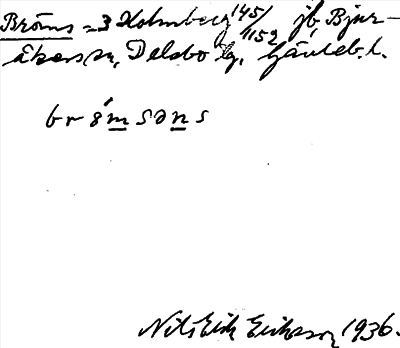 Bröms = 3 Holmberg 145/1152 jb, Bjur-
åkers sn, Delsbo tg, Gävleb. l.
br ö́ m s ə n s
Nils Erik Eriksson 1936.